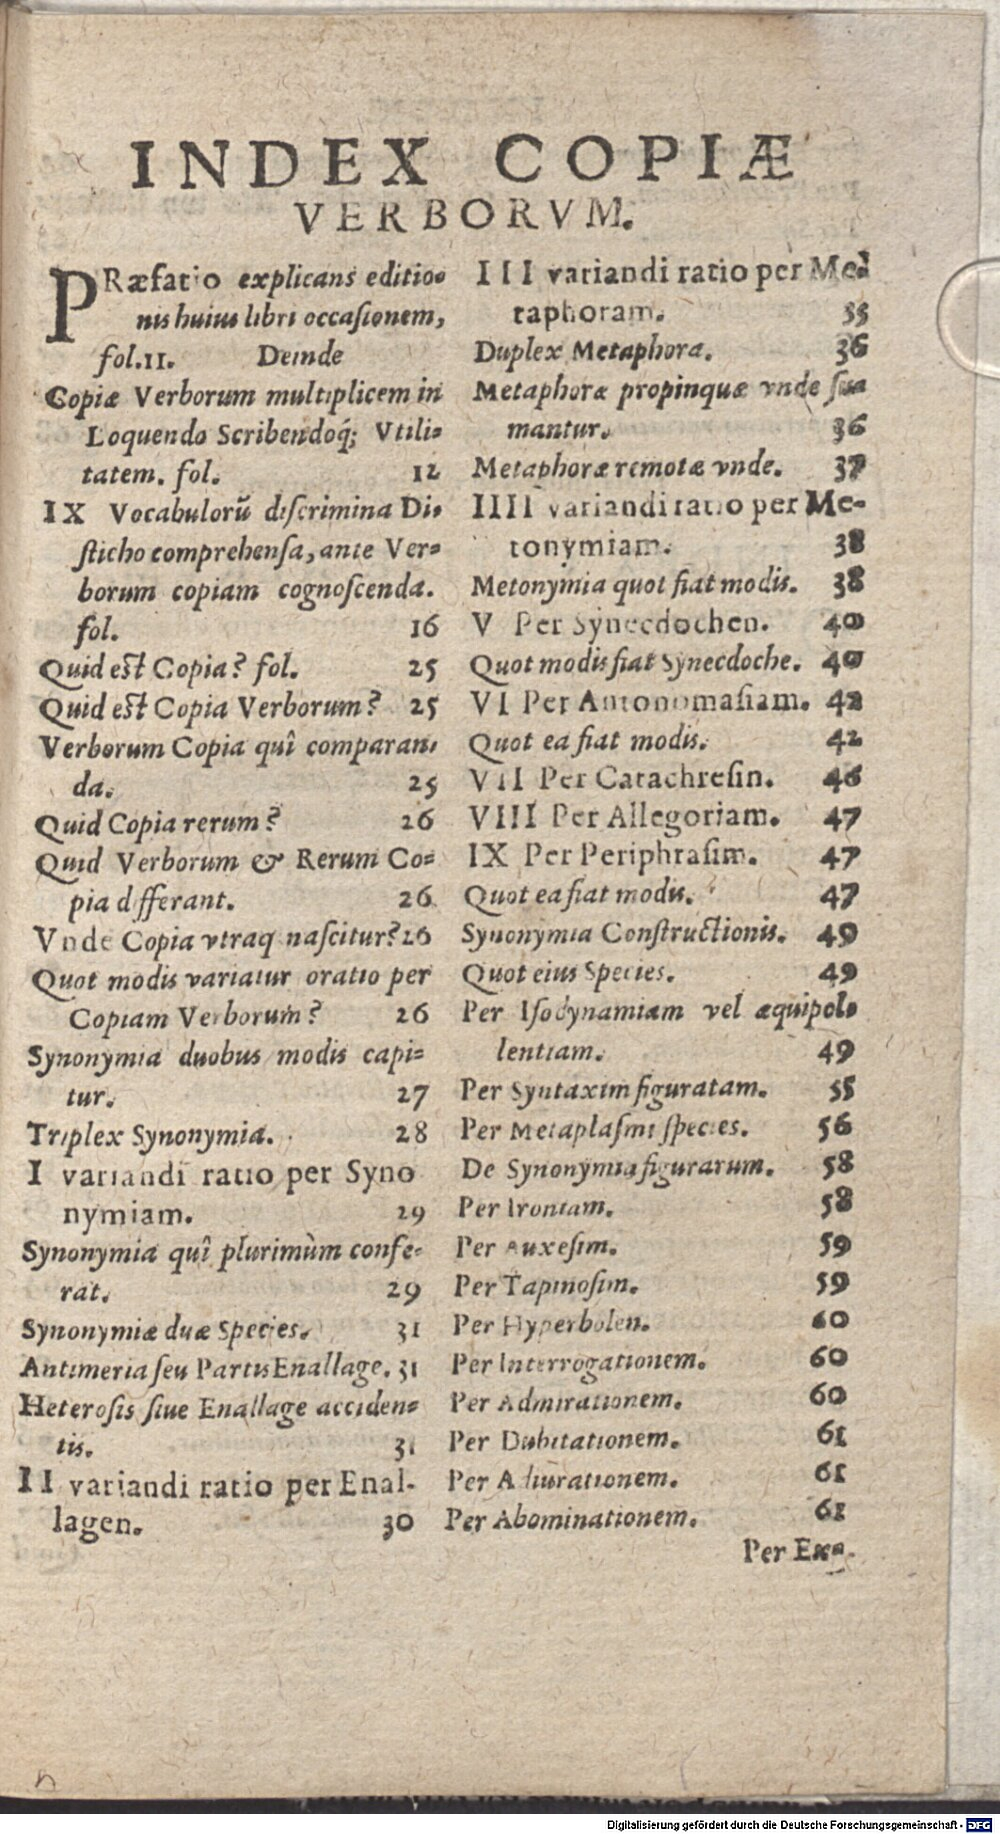 INDEX COPIÆ
VERBORVM.
PRæfatio explicans editio-
nis huius libri occaſionem,
fol.11. Deinde
Copiæ Verborum multiplicem in
Loquendo Scribendoq́; Vtili-
tatem. fol. 12
IX Vocabulorũ diſcrimina Di-
ſticho comprehenſa, ante Ver-
borum copiam cognoſcenda.
fol. 16
Quid eſt Copia? fol. 25
Quid eſt Copia Verborum? 25
Verborum Copia quî comparan-
da. 25
Quid Copia rerum? 26
Quid Verborum & Rerum Co-
pia dfferant. 26
Vnde Copia vtraq naſcitur? 26
Quot modis variatur oratio per
Copiam Verborum? 26
Synonymia duobus modis capi-
tur. 27
Triplex Synonymia. 28
I variandi ratio per Syno
nymiam. 29
Synonymia quî plurimùm confe-
rat. 29
Synonymiæ duæ Species. 31
Antimeria ſeu Partis Enallage. 31
Heteroſis ſiue Enallage acciden-
tis. 31
II variandi ratio per Enal-
lagen. 30
III variandi ratio per Me-
taphoram. 35
Duplex Metaphora. 36
Metaphoræ propinquæ vnde ſua
mantur. 36
Metaphoræ remotæ vnde. 37
IIII variandi ratio per Me-
tonymiam. 38
Metonymia quot fiat modis. 38
V Per Synecdochen. 40
Quot modis fiat Synecdoche. 40
VI Per Antonomaſiam. 42
Quot ea fiat modis. 42
VII Per Catachreſin. 46
VIII Per Allegoriam. 47
IX Per Periphraſim. 47
Quot ea fiat modis. 47
Synonymia Conſtructionis. 49
Quot eius Species. 49
Per Iſodynamiam vel æquipol-
lentiam. 49
Per Syntaxim figuratam. 55
Per Metaplaſmi ſpecies. 56
De Synonymia figurarum. 58
Per Ironiam. 58
Per Auxeſim. 59
Per Tapinoſim. 59
Per Hyperbolen. 60
Per Interrogationem. 60
Per Admirationem. 60
Per Dubitationem. 61
Per Adiurationem. 61
Per Abominationem. 61
Per Exa-
Digitalisierung gefördert durch die Deutsche Forschungsgemeinschaft - DFG